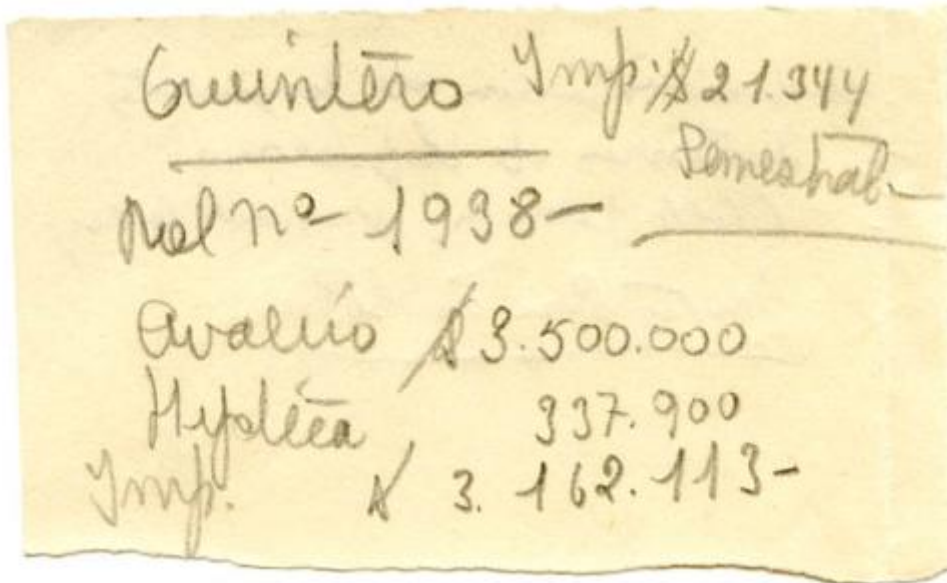 Quintero Imp. $21.344
Semestral-
Rol nº 1938-
Avalúo $3.500.000
Hipoteca 337.900
Imp. $ 3.162.113-